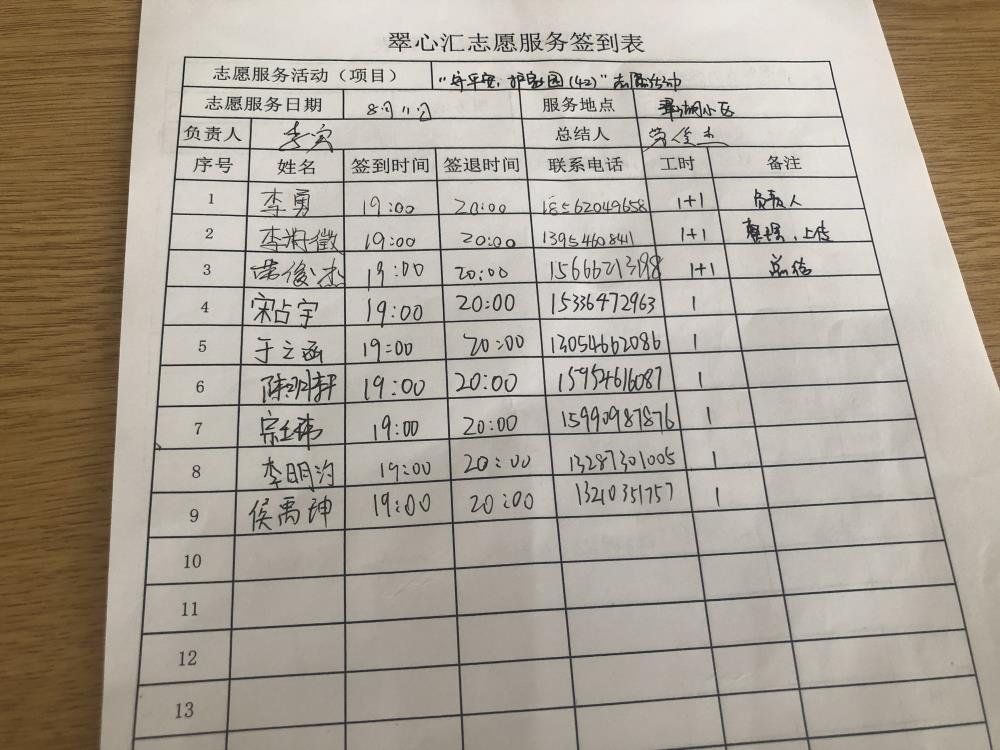 翠心汇志愿服务签到表
志愿服务活动（项目） “守平安，护家园(42)”志愿活动
志愿服务日期 8月11日 服务地点 翠湖小区
负责人 李 总结人 杰
序号 姓名 签到时间 签退时间 联系电话 工时 备注
1 李勇 19:00 20:00 18562049658 1+1 负责人
2 李 徵 19:00 20:00 13954608411 1+1 上传
3 俊杰 19:00 20:00 1+1 总结
4 宋占宇 19:00 20:00 15336472963 1
5 于立函 19:00 20:00 13054662086 1
6 陈明轩 19:00 20:00 15954616087 1
7 宗 玮 19:00 20:00 15990987876 1
8 李明 19:00 20:00 13287301005 1
9 侯禹坤 19:00 20:00 13210351757 1
10
11
12
13